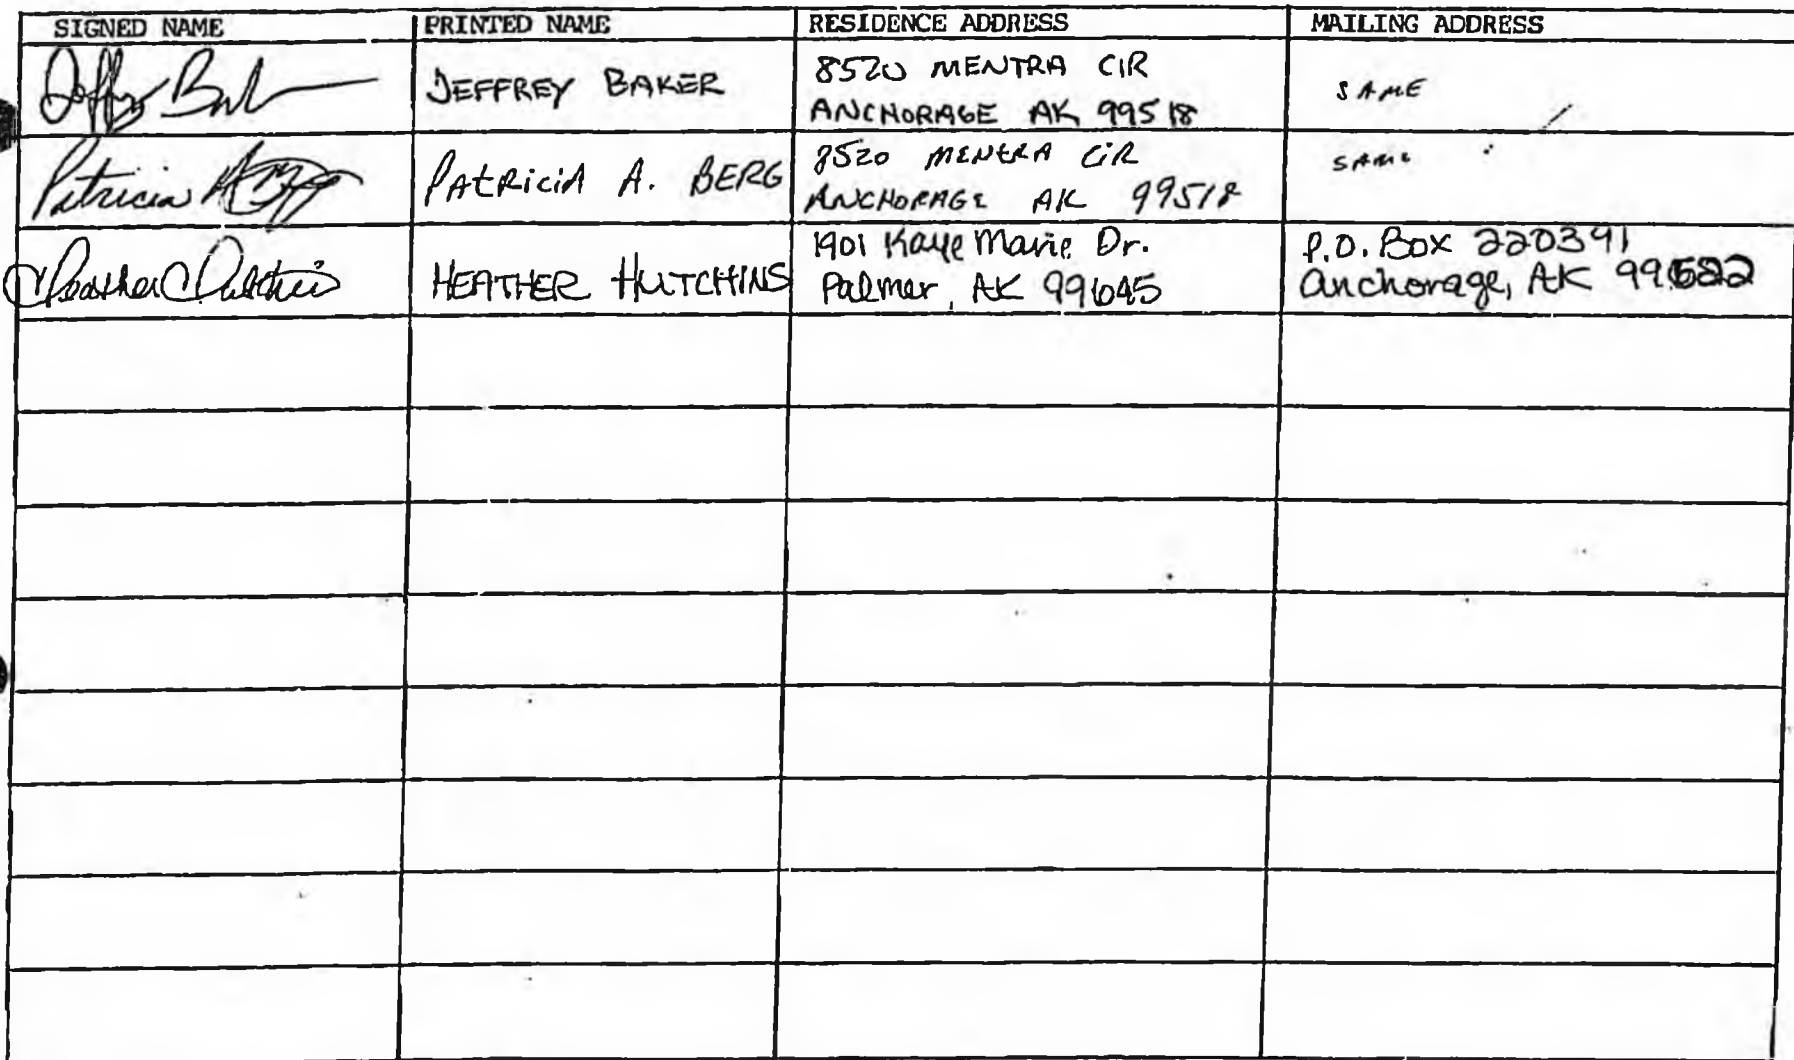 SIGNED NAME PRINTED NAME RESIDENCE ADDRESS MAILING ADDRESS
JEFFREY BAKER
8520 MENTRA CIR
ANCHORAGE AK 99518
SAME
Patricia
PATRICIA A. BERG
8520 MENTRA CIR
ANCHORAGE AK 99518
SAME
Heather Hutchins
HEATHER HUTCHINS
1901 Kaye Marie Dr.
Palmer, AK 99645
P.O. Box 220391
Anchorage, AK 99522